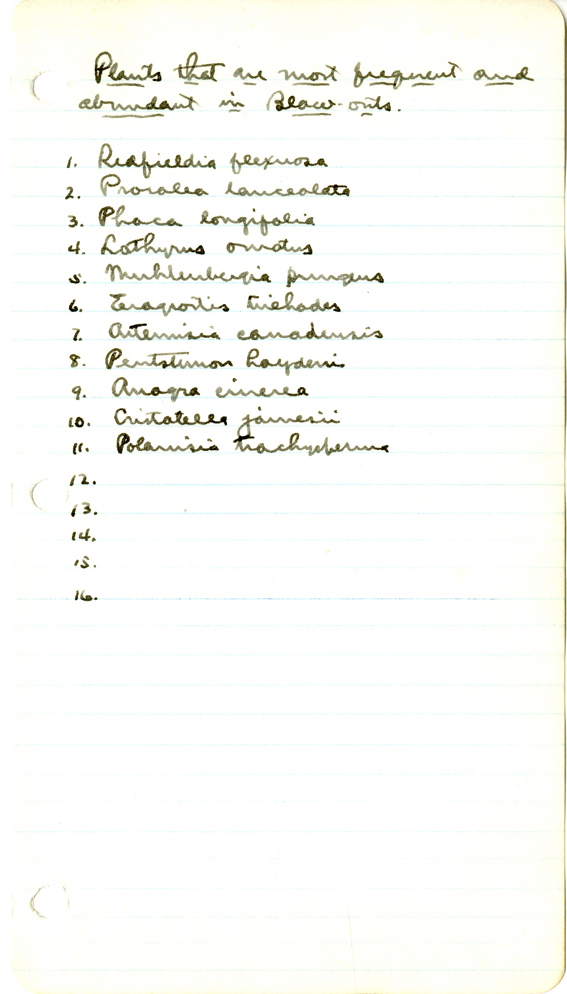 Plants that are most frequent and
abundant in Blow-outs.
1. Redfieldia flexuosa
2. Psoralea lanceolata
3. Phaca longifolia
4. Lathyrus ornatus
5. Muhlenbergia pungens
6. Eragrostis trichodes
7. Artemisia canadensis
8. Pentstemon haydeni
9. Anogra cinerea
10. Cristatella jamesii
11. Polanisia trachysperma
12.
13.
14.
15.
16.